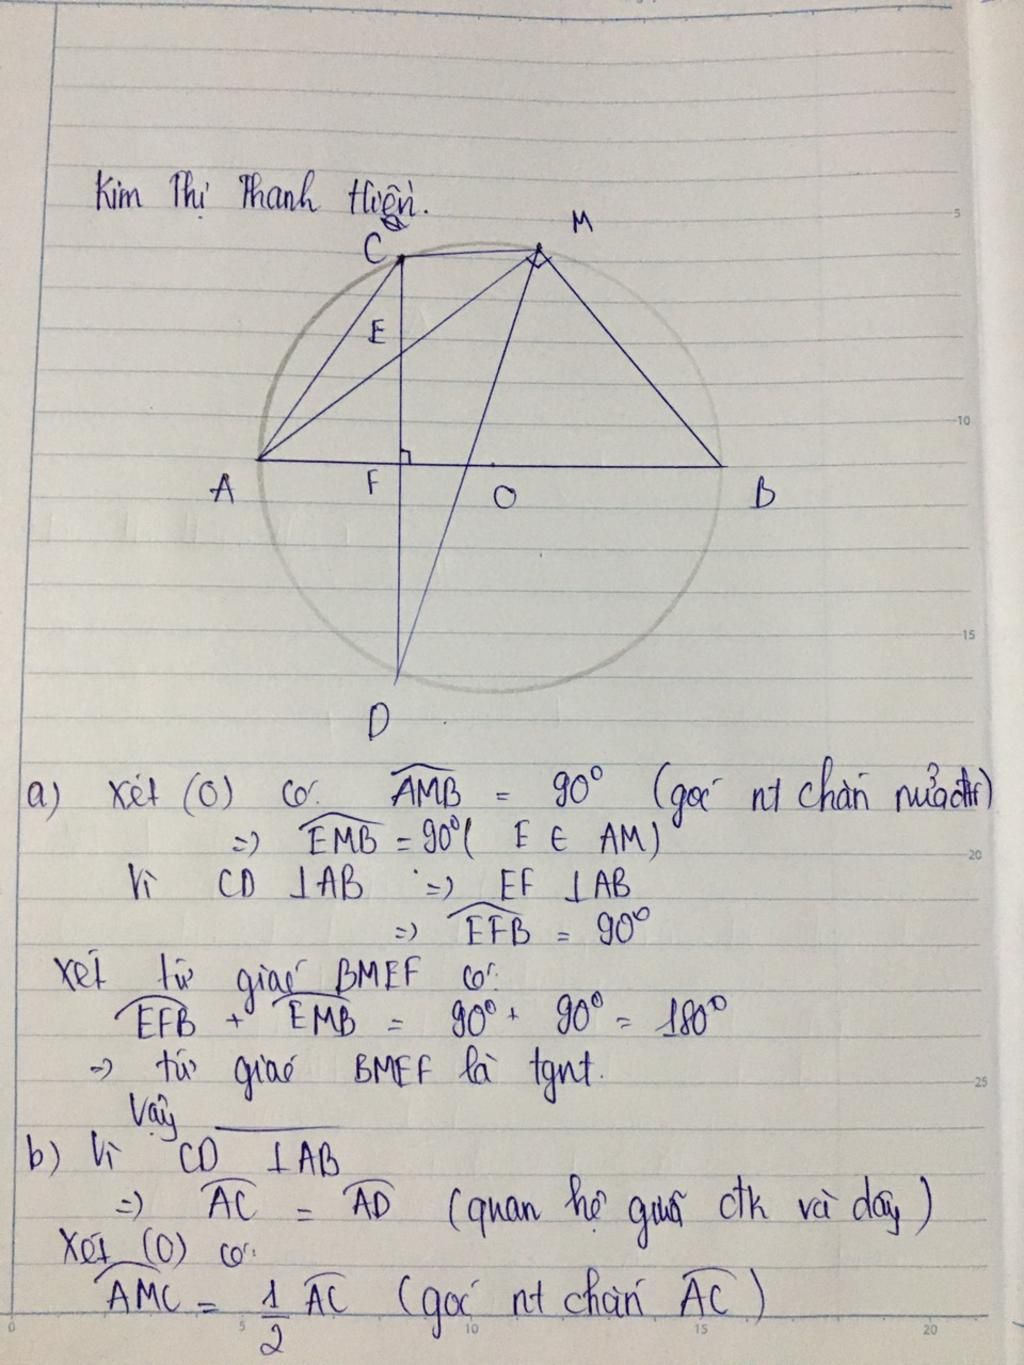 Kim Thị Thanh Hiền.
C
M
E
A
F
O
B
D
a) Xét (O) có: AMB = 90° (góc nt chắn nửa đtr)
=> EMB = 90° ( E ∈ AM)
Vì CD ⊥ AB => EF ⊥ AB
=> EFB = 90°
Xét tứ giác BMEF có:
EFB + EMB = 90° + 90° = 180°
=> tứ giác BMEF là tgnt.
Vậy
b) Vì CD ⊥ AB
=> AC = AD (quan hệ giữa đk và dây)
Xét (O) có:
AMC = 1/2 AC (góc nt chắn AC)
5
10
15
20
25
0 5 10 15 20